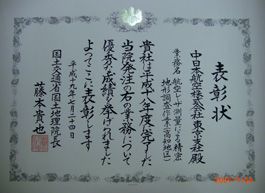 表彰状
中日本航空株式会社東京支社殿
業務名 航空レーザ測量による精密
地形調査作業(高知地区)
貴社は平成十八年度完了した
当院発注の右の業務について
優秀な成績を挙げられました
よってここに表彰します
平成十九年七月二十四日
国土交通省国土地理院長
藤本貴也